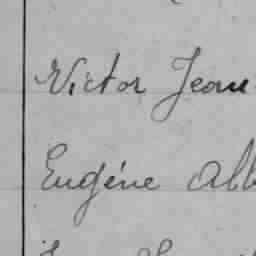 Victor Jean
Eugéne Alb